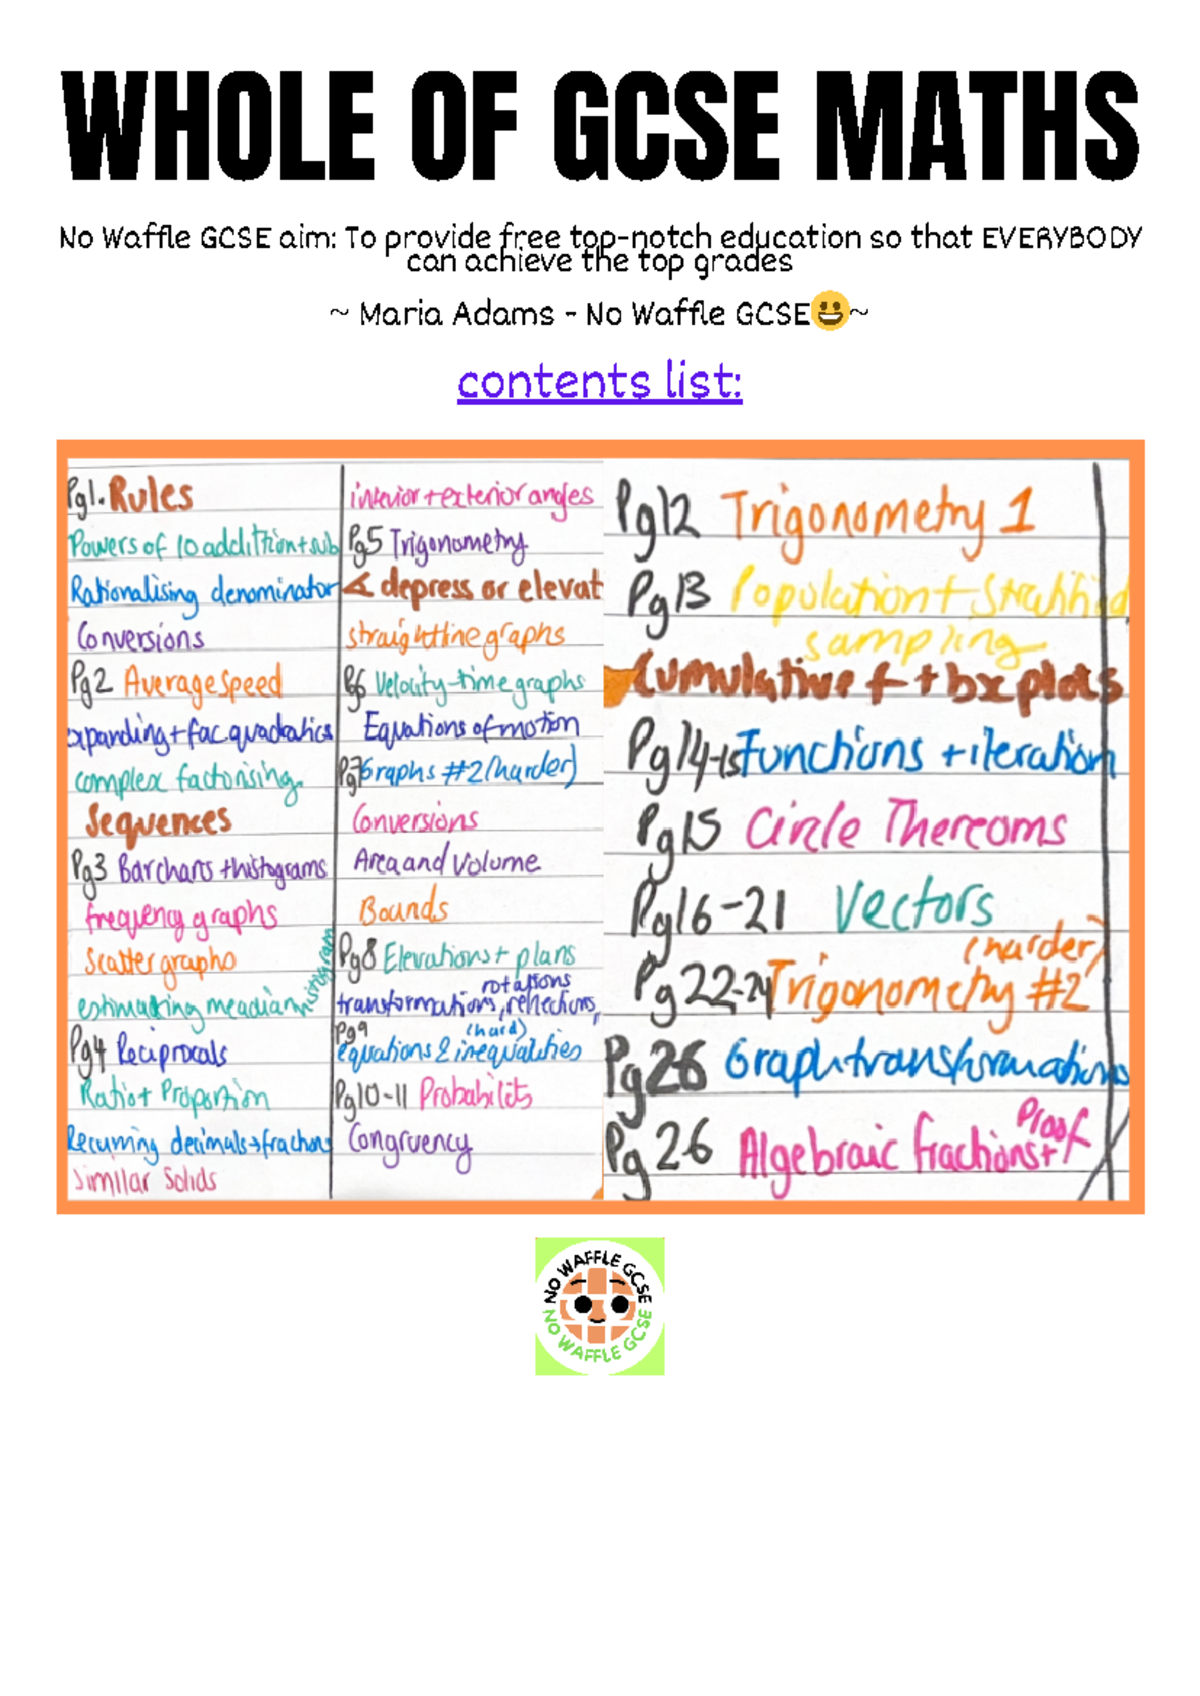 WHOLE OF GCSE MATHS
No Waffle GCSE aim: To provide free top-notch education so that EVERYBODY
can achieve the top grades
~ Maria Adams - No Waffle GCSE😃~
contents list:
Pg1. Rules
Powers of 10 addition+sub
Rationalising denominator
Conversions
Pg2 Average speed
xpanding+fac.quadratics
complex factorising
Sequences
Pg3 Bar charts +histograms
frequency graphs
Scatter graphs
estimating meadian histogram
Pg4 Reciprocals
Ratio+ Proportion
Recurring decimals→fractions
Similar Solids
interior+exterior angles
Pg5 Trigonometry
∡ depress or elevat
straight line graphs
Pg6 Velocity-time graphs
Equations of motion
Pg7 Graphs #2 (harder)
Conversions
Area and Volume
Bounds
Pg8 Elevations+ plans
rotations
transformations, reflections,
Pg9 (hard)
equations & inequalities
Pg10-11 Probability
Congruency
Pg12 Trigonometry 1
Pg13 Population+ Stratified
sampling
Cumulative f + bx plots
Pg14-15 Functions +iteration
Pg15 Circle Thereoms
Pg16-21 Vectors
(harder)
Pg22-24 Trigonometry #2
Pg26 Graph transformations
Proof
Pg 26 Algebraic fractions+
NO WAFFLE GCSE
NO WAFFLE GCSE